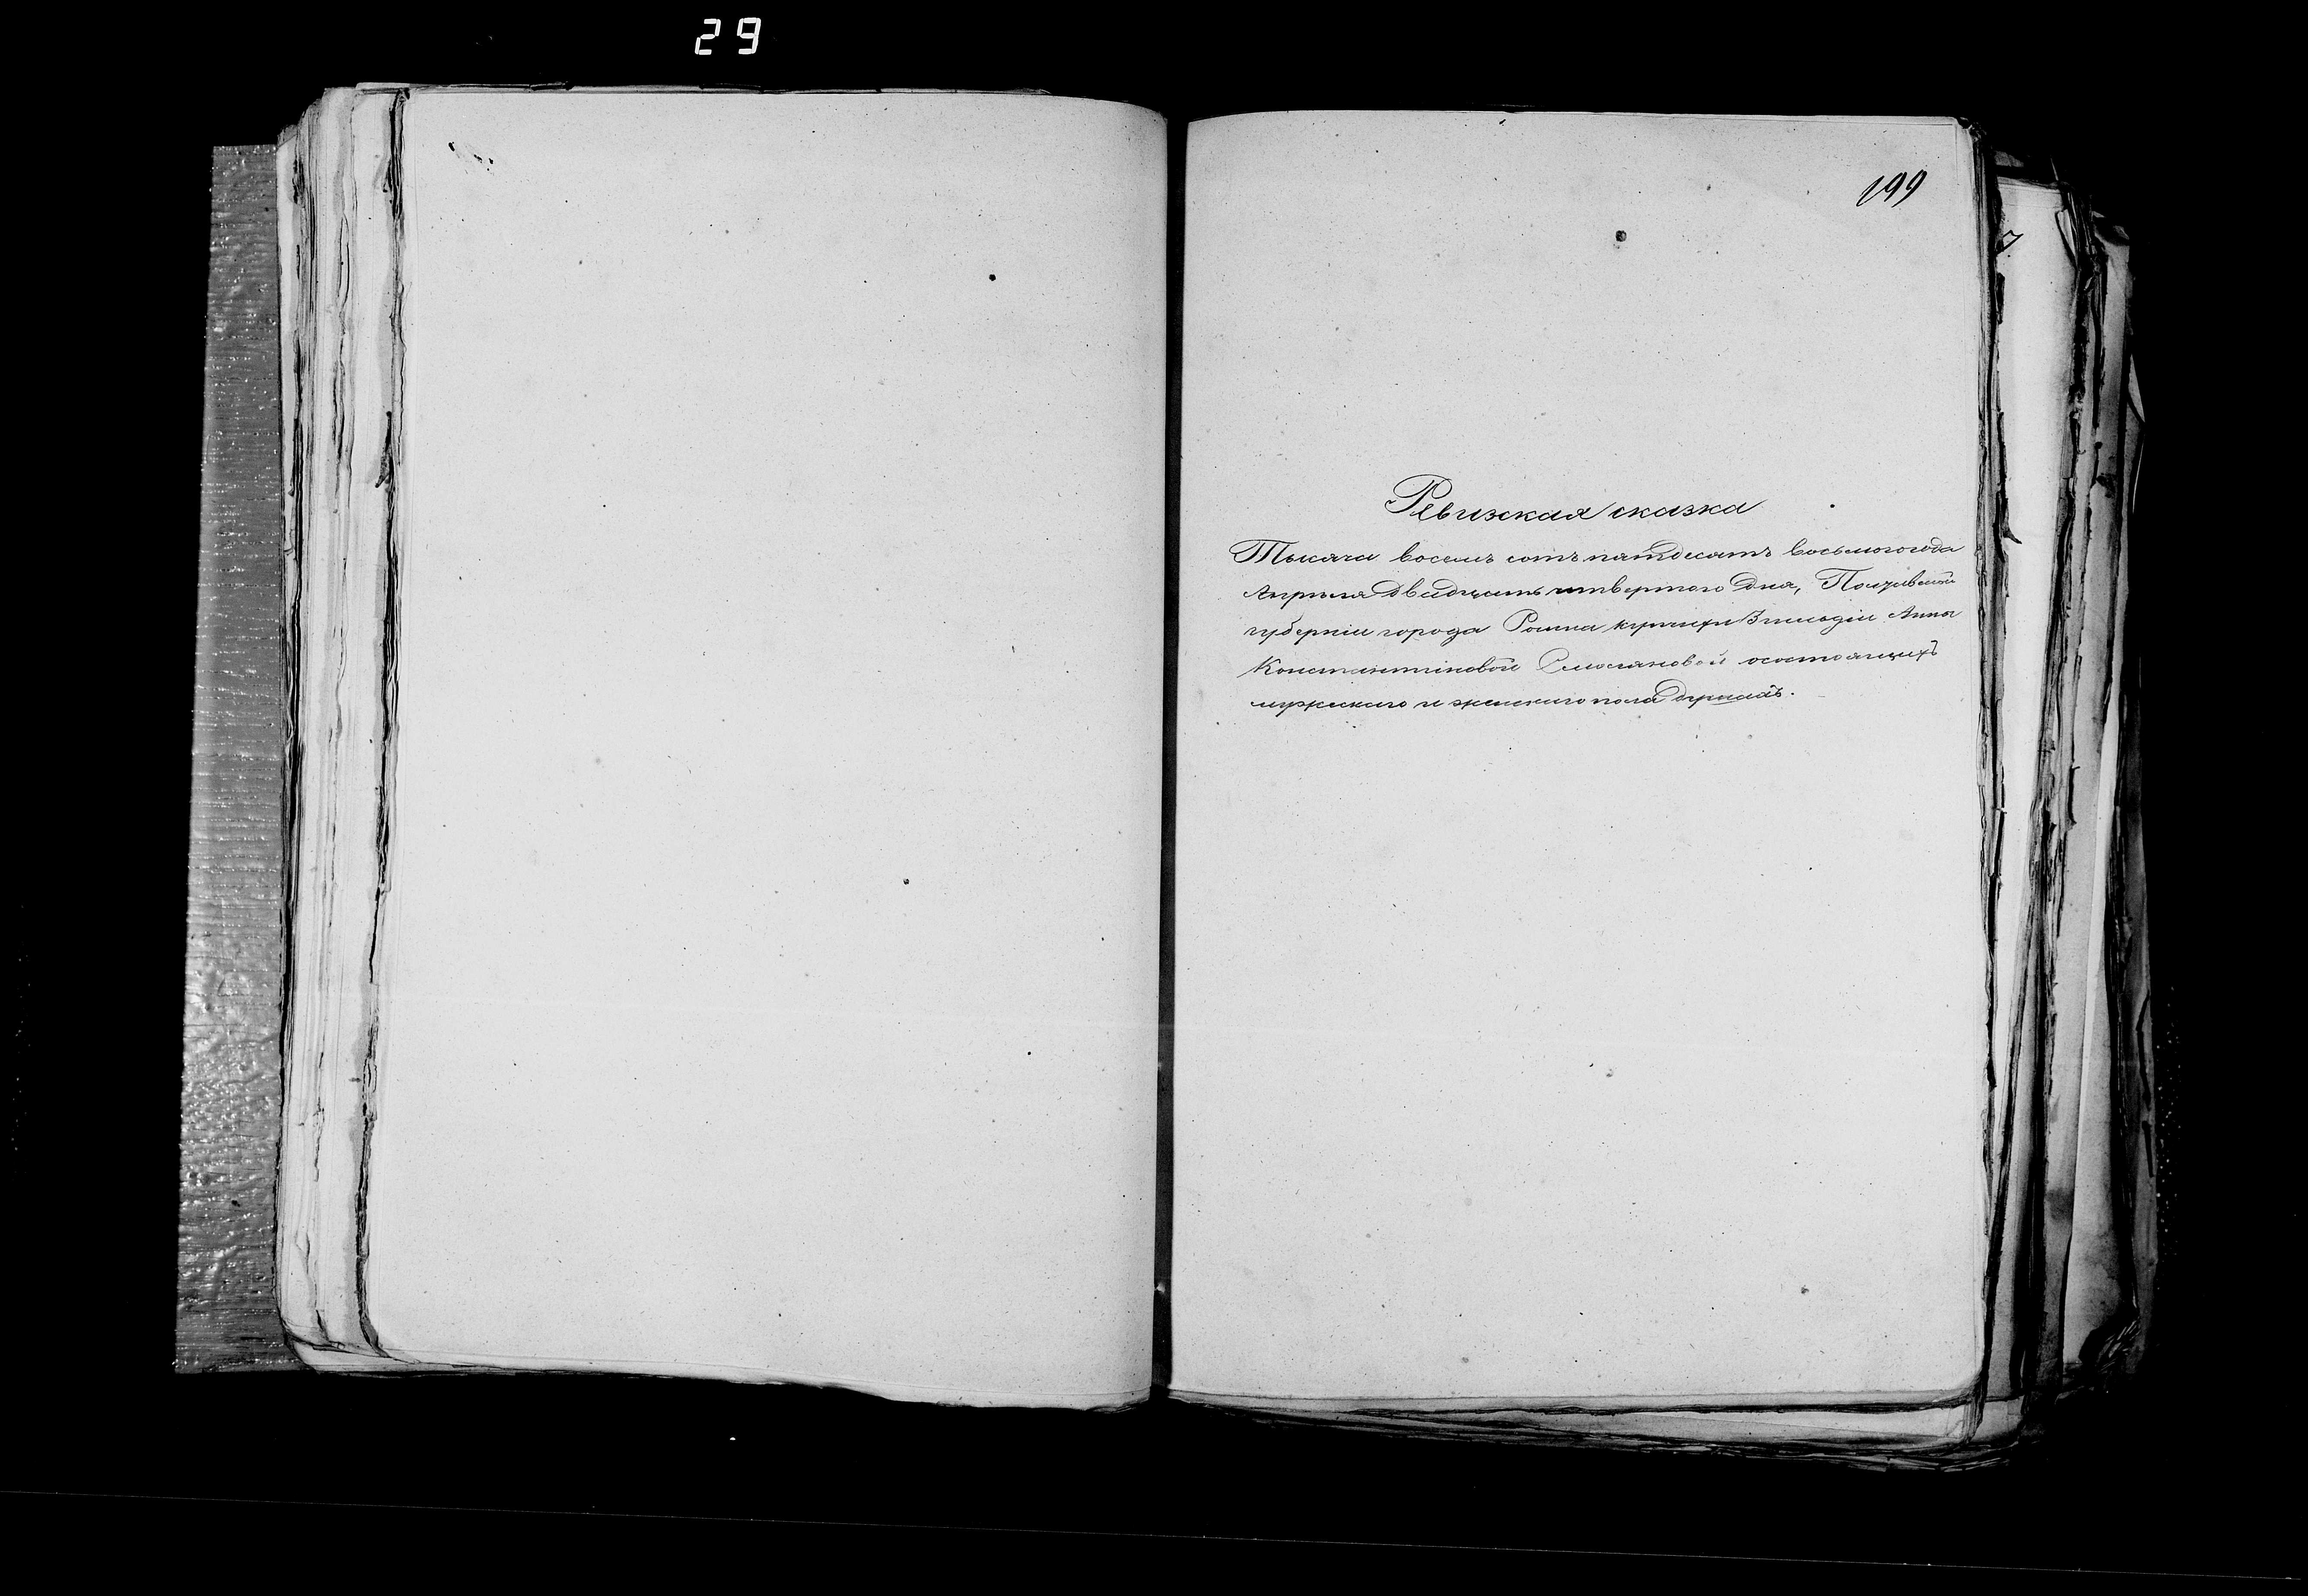 29
199
Ревизская сказка
Тысяча восемь сотъ пятдесятъ восьмого года
Апреля двадцать четвертого дня, Полтавской
губерніи города Ромна купчихи 3 гильдіи Анны
Константиновой о состоящихъ
мужеского и женского пола душахъ.